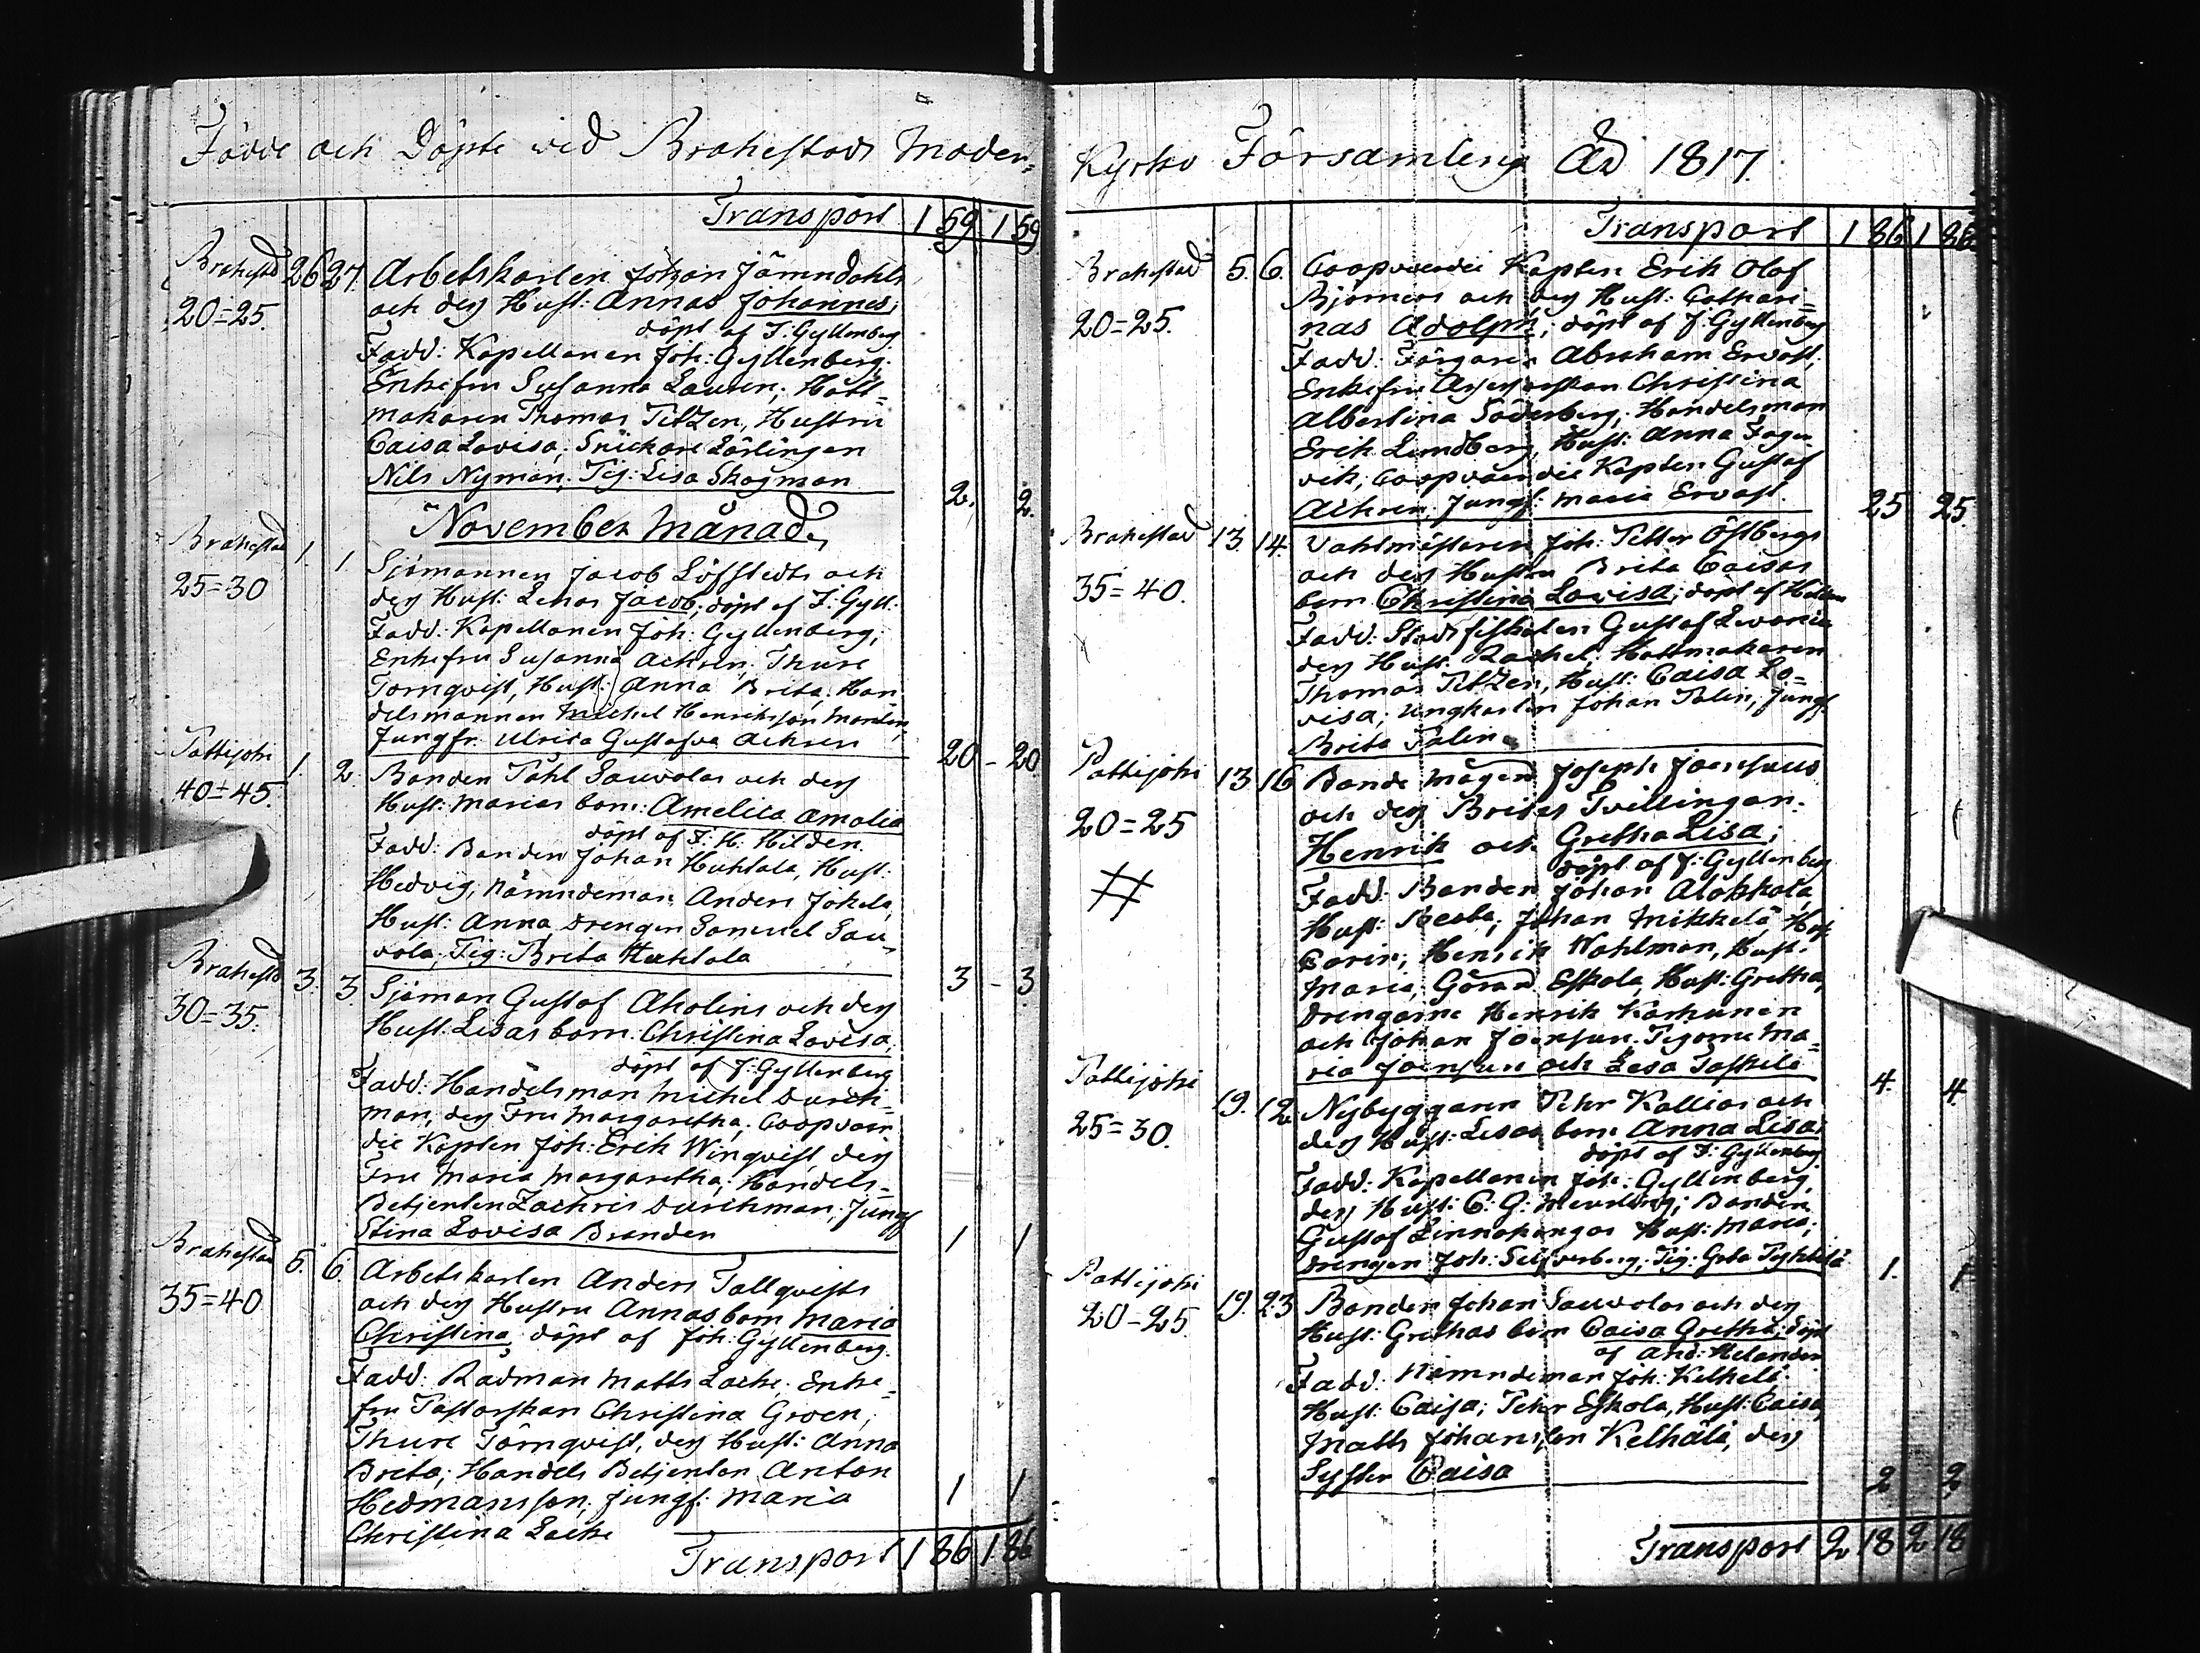 Födde och Döpte wid Brahestads Moder=
Transport 1 59 1 59
Brahestad 26 27. Arbetskarlen Johan Jämndahls
20=25. och deß Hust: Annas Johannes;
döpt af J: Gyllenberg
Fadd: Kapellanen Joh: Gyllenberg;
Enkefru Susanna Lauren; Hatt=
makaren Thomas Tetzen, Hustru
Caisa Lovisa; Snickare Lärlingen
Nils Nyman, Pig: Lisa Skogman 2. 2.
November Månad.
Brahestad 1. 1. Sjömannen Jacob Löfstedts och
25=30 deß Hust: Lenas Jacob; döpt af J: Gyll:
Fadd: Kapellanen Joh: Gyllenberg;
Enkefru Susanna Achrén; Thure
Tornqvist, Hust: Anna Brita; Han
delsmannen Michel Henriksson
Jungfr. Ulrica Gustafva Achren 20 - 20
Pattijoki 1. 2. Bonden Påhl Sauvolas och deß
40=45. Hust: Marias barn: Amelica Amalia
döpt af J: H: Hildén
Fadd: Bonden Johan Huhtala, Hust:
Hedvig, Nämndeman Anders Jokela,
Hust: Anna, Drengen Samuel Sau=
vola, Pig: Brita Huhtala 3 - 3
Brahestd 3. 3. Sjöman Gustaf Aholins och deß
30=35. Hust: Lisas barn: Christina Lovisa;
döpt af J: Gyllenberg
Fadd: Handelsman Michel Durch=
man, deß Fru Margaretha; Coopvær
die Kapten Joh: Erik Winqvist, deß
Fru Maria Margaretha; Handels=
Betjenten Zachris Durchman, Jungf
Stina Lovisa Branden 1 1
Brahestad 5. 6. Arbetskarlen Anders Tallqvists
35=40 och deß Hustru Annas barn Maria
Christina, döpt af Joh: Gyllenberg.
Fadd: Rådman Matts Lacke; Enke=
fru Pastorskan Christina Groen;
Thure Törnqvist, deß Hust: Anna
Brita; Handels Betjenten Anton
Hedmansson, Jungf: Maria 1 1
Christina Lacke
Transport 1 86 1 86
Kyrko Församling Åd 1817.
Transport 1 86 1 86
Brahestad 5. 6. Coopværdie Kapten Erik Olof
Björners och deß Hust: Cathari=
20=25. nas Adolph; döpt af J: Gyllenberg
Fadd: Färgaren Abraham Ervast,
Enkefru Christina
Albertina Söderberg; Handelsman
Erik Lundberg, Hust: Anna Fager
vik; Coopværdie Kapten Gustaf
Achren, Jungf: Maria Ervast. 25 25.
Brahestad 13. 14. Vahtmästaren Joh: Petter Östbergs
och deß Hustru Brita Caisas
35=40. barn Christina Lovisa; döpt af Hildén
Fadd: Stads fiskalen Gustaf
deß Hust: Rachel; Hattmakaren
Thomas Tetzen, Hust: Caisa Lo=
visa; Ungkarlen Johan Palin, Jungf.
Brita Palin
Pattijoki 13 16 Bonde mågen Joseph Joensuus
och deß Britas Tvillingar:
20=25 Henrik och Gretha Lisa;
döpt af J: Gyllenberg
# Fadd: Bonden Johan Alokkola,
Hust: Beata; Johan Mikkelä, Hust
Carin; Henrik Wahlman, Hust:
Maria; Göran Eskola, Hust: Gretha;
Drengarne Henrik Karhunen
och Johan Joensuu. Pigorne Ma=
ria Joensuu och Lisa Paskela 4. 4.
Pattijoki 19. 12. Nybyggaren Pehr Kallias och
25=30. deß Hust: Lisas barn Anna Lisa;
döpt af J: Gyllenberg
Fadd: Kapellanen Joh: Gyllenberg,
deß Hust: C: G: Meurling; Bonden
Gustaf Linnakangas Hust: Maria;
Drengen Joh: Silfverberg, Pig: Greta 1. 1
Pattijoki 19. 23 Bonden Johan Sauvolas och deß
20-25. Hust: Grethas barn Caisa Gretha; döpt
af And: Helander
Fadd: Nämndeman Joh: Kelhelä
Hust: Caisa; Pehr Eskola, Hust: Caisa,
Matts Johansson Kelhälä, deß
Syster Caisa 2 2
Transport 2 18 2 18